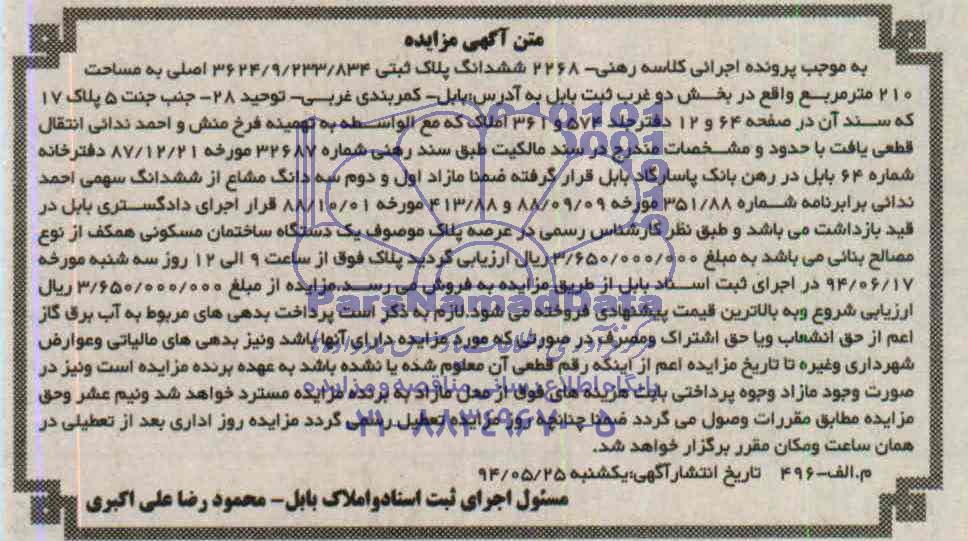 متن آگهی مزایده
به موجب پرونده اجرائی کلاسه رهنی- ۲۲۶۸ ششدانگ پلاک ثبتی ۳۶۲۴/۹/۲۳۳/۸۳۴ اصلی به مساحت
۲۱۰ مترمربع واقع در بخش دو غرب ثبت بابل به آدرس:بابل- کمربندی غربی- توحید ۲۸- جنب جنت ۵ پلاک ۱۷
که سند آن در صفحه ۶۴ و ۱۲ دفترجلد ۵۷۴ و ۳۶۱ املاک که مع الواسطه به تهمینه فرخ منش و احمد ندائی انتقال
قطعی یافت با حدود و مشخصات مندرج در سند مالکیت طبق سند رهنی شماره ۳۲۶۸۷ مورخه ۸۷/۱۲/۲۱ دفترخانه
شماره ۶۴ بابل در رهن بانک پاسارگاد بابل قرار گرفته ضمنا مازاد اول و دوم سه دانگ مشاع از ششدانگ سهمی احمد
ندائی برابرنامه شماره ۳۵۱/۸۸ مورخه ۸۸/۰۹/۰۹ و ۴۱۳/۸۸ مورخه ۸۸/۱۰/۰۱ قرار اجرای دادگستری بابل در
قید بازداشت می باشد و طبق نظر کارشناس رسمی در عرصه پلاک موصوف یک دستگاه ساختمان مسکونی همکف از نوع
مصالح بنائی می باشد به مبلغ ۳/۶۵۰/۰۰۰/۰۰۰ ریال ارزیابی گردید پلاک فوق از ساعت ۹ الی ۱۲ روز سه شنبه مورخه
۹۴/۰۶/۱۷ در اجرای ثبت اسناد بابل از طریق مزایده به فروش می رسد.مزایده از مبلغ ۳/۶۵۰/۰۰۰/۰۰۰ ریال
ارزیابی شروع وبه بالاترین قیمت پیشنهادی فروخته می شود.لازم به ذکر است پرداخت بدهی های مربوط به آب برق گاز
اعم از حق انشعاب ویا حق اشتراک ومصرف در صورتی که مورد مزایده دارای آنها باشد ونیز بدهی های مالیاتی وعوارض
شهرداری وغیره تا تاریخ مزایده اعم از اینکه رقم قطعی آن معلوم شده یا نشده باشد به عهده برنده مزایده است ونیز در
صورت وجود مازاد وجوه پرداختی بابت هزینه های فوق از محل مازاد به برنده مزایده مسترد خواهد شد ونیم عشر وحق
مزایده مطابق مقررات وصول می گردد ضمنا چنانچه روز مزایده تعطیل رسمی گردد مزایده روز اداری بعد از تعطیلی در
همان ساعت ومکان مقرر برگزار خواهد شد.
م.الف-۴۹۶ تاریخ انتشارآگهی:یکشنبه ۹۴/۰۵/۲۵
مسئول اجرای ثبت اسنادواملاک بابل- محمود رضا علی اکبری
ParsNamadData
پایگاه اطلاع رسانی مناقصه ومزایده
۰۲۱-۸۸۳۴۹۶۷۰-۵